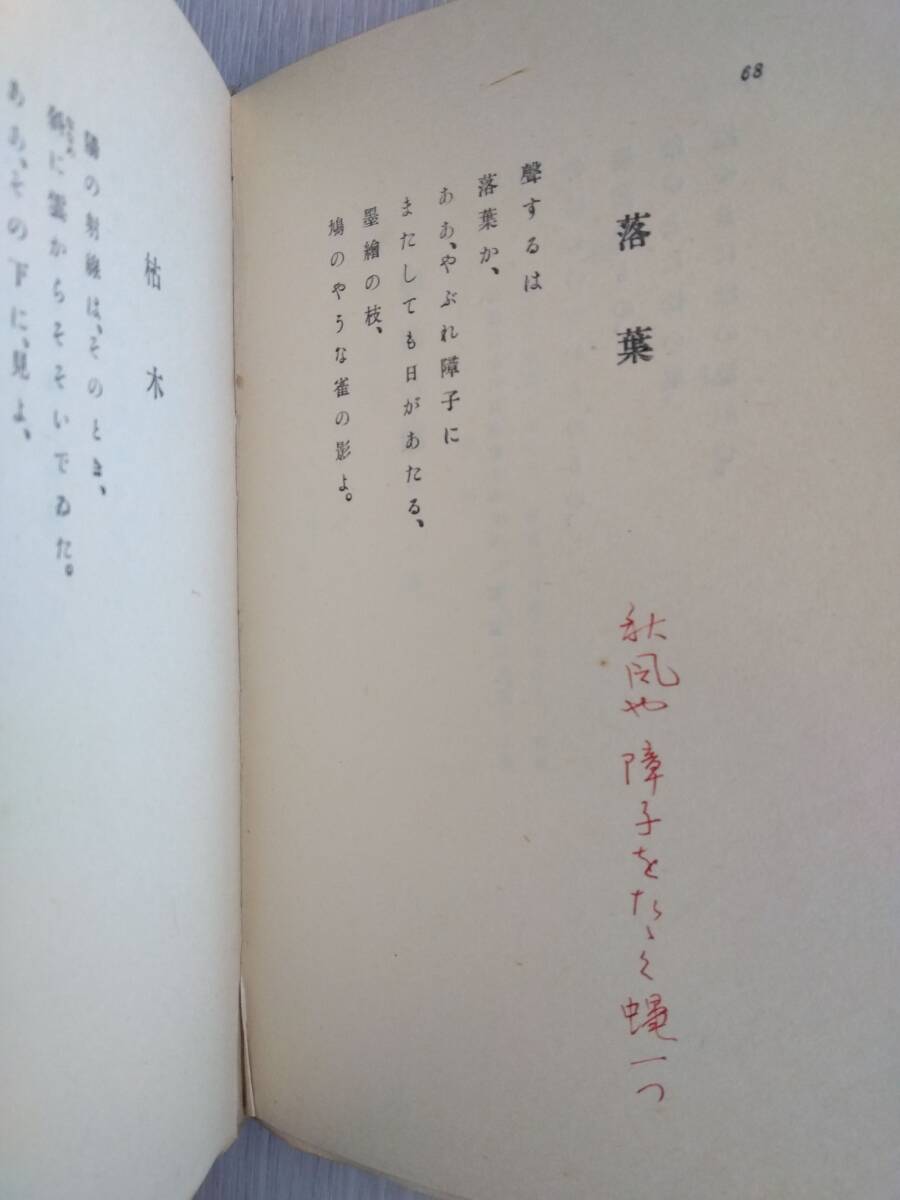 68
落葉
秋風や障子をたゝく蝿一つ
聲するは
落葉か、
ああ、やぶれ障子に
またしても日があたる、
墨繪の枝、
鳩のやうな雀の影よ。
枯木
陽の射線は、そのとき、
斜に雲からそそいでゐた。
ああ、その下に、見よ、